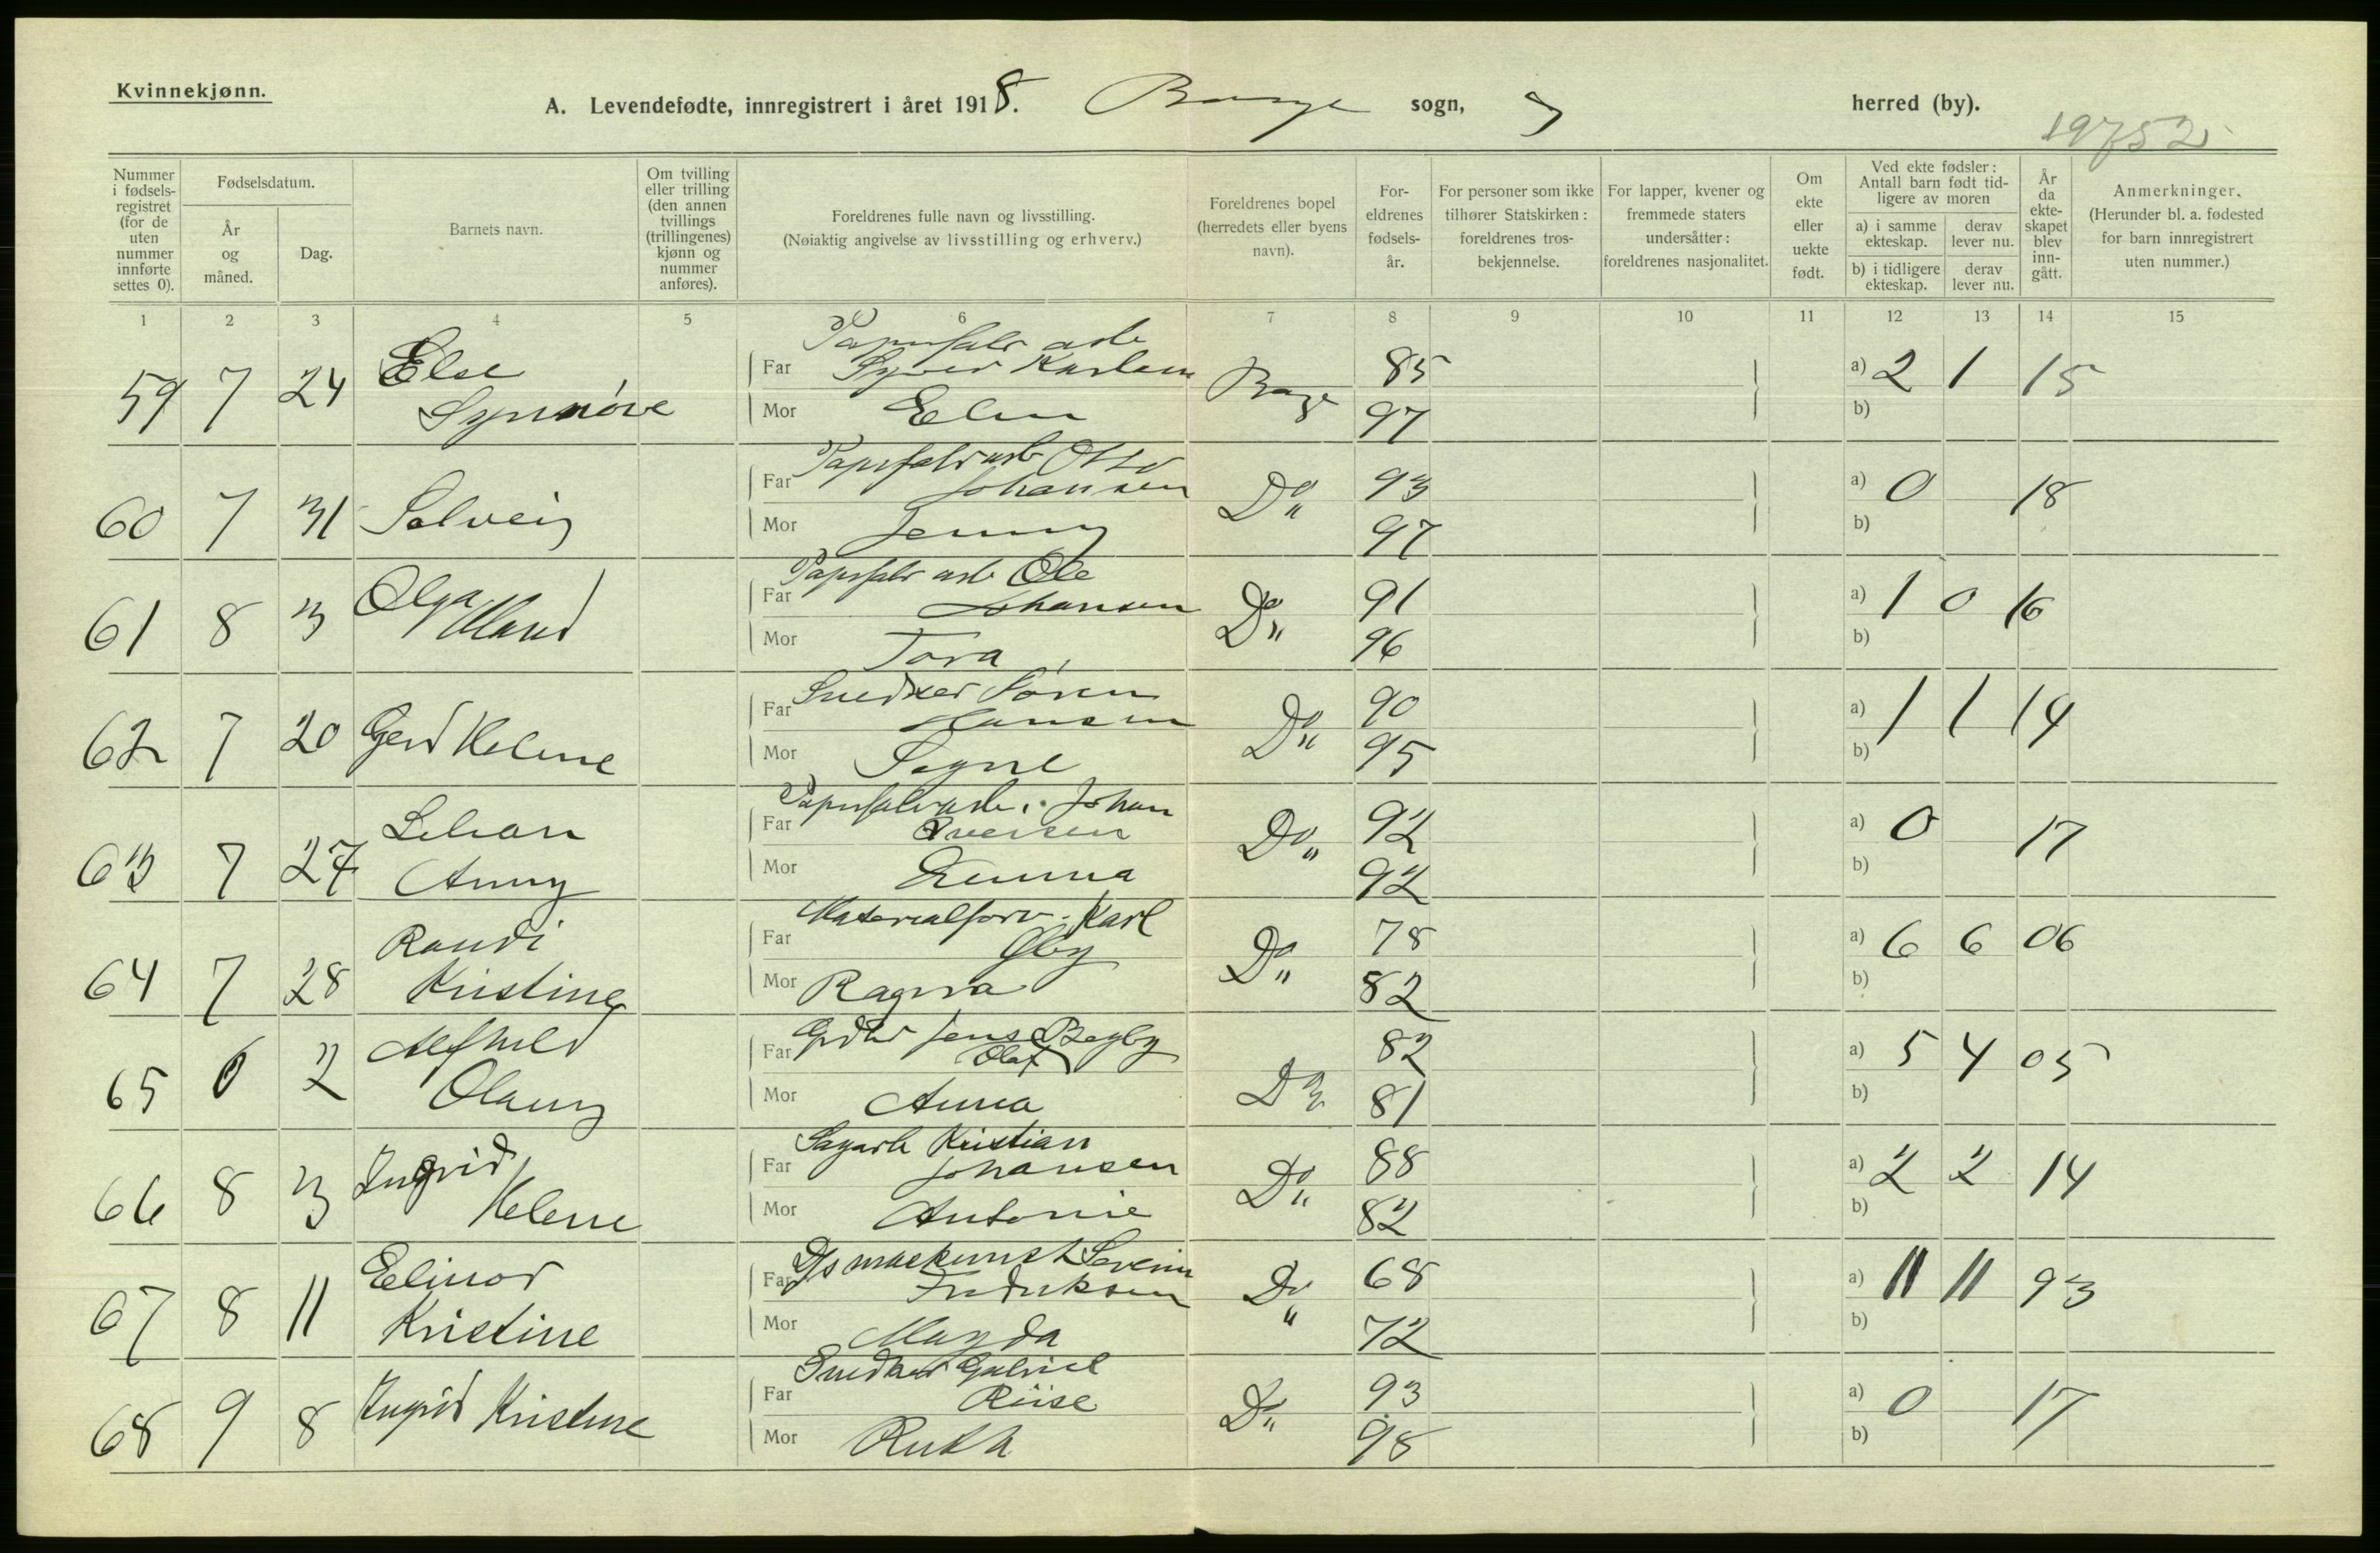 Kvinnekjønn.
A. Levendefødte, innregistrert i året 1918. Borge sogn, herred (by).
19752
Nummer i fødselsregistret (for de uten nummer innførte settes 0).
Fødselsdatum.
År og måned.
Dag.
Barnets navn.
Om tvilling eller trilling (den annen tvillings (trillingenes) kjønn og nummer anføres).
Foreldrenes fulle navn og livsstilling.
(Nøiaktig angivelse av livsstilling og erhverv.)
Foreldrenes bopel (herredets eller byens navn).
Foreldrenes fødselsår.
For personer som ikke tilhører Statskirken: foreldrenes trosbekjennelse.
For lapper, kvener og fremmede staters undersåtter: foreldrenes nasjonalitet.
Om ekte eller uekte født.
Ved ekte fødsler: Antall barn født tidligere av moren
a) i samme ekteskap. derav lever nu.
b) i tidligere ekteskap. derav lever nu.
År da ekteskapet blev inngått.
Anmerkninger.
(Herunder bl. a. fødested for barn innregistrert uten nummer.)
1 2 3 4 5 6 7 8 9 10 11 12 13 14 15
59 7 24 Else Synnøve Far Papirfabr arb Syver Karlsen Borge 85 a) 2 1 15
Mor Elen 97 b)
60 7 31 Solveig Far Papirfabr arb Otto Johansen Do 93 a) 0 18
Mor Jenny 97 b)
61 8 3 Olga Maud Far Papirfabr arb Ole Johansen Do 91 a) 1 0 16
Mor Tora 96 b)
62 7 20 Gerd Helene Far Snedker Søren Hansen Do 90 a) 1 1 14
Mor Signe 95 b)
63 7 27 Lilian Anny Far Papirfabr arb. Johan Iversen Do 92 a) 0 17
Mor Emma 92 b)
64 7 28 Randi Kristine Far Materialforv. Karl Øby Do 78 a) 6 6 06
Mor Ragna 82 b)
65 6 2 Alfhild Olaug Far Gdbr Jens Olaf Begby Do 82 a) 5 4 05
Mor Anna 81 b)
66 8 3 Ingrid Helene Far Sagarb Kristian Johansen Do 88 a) 2 2 14
Mor Antonie 82 b)
67 8 11 Elinor Kristine Far D/s maskinist Severin Fredriksen Do 68 a) 11 11 93
Mor Magda 72 b)
68 9 8 Ingrid Kristine Far Snedker Gabriel Riise Do 93 a) 0 17
Mor Ruth 98 b)